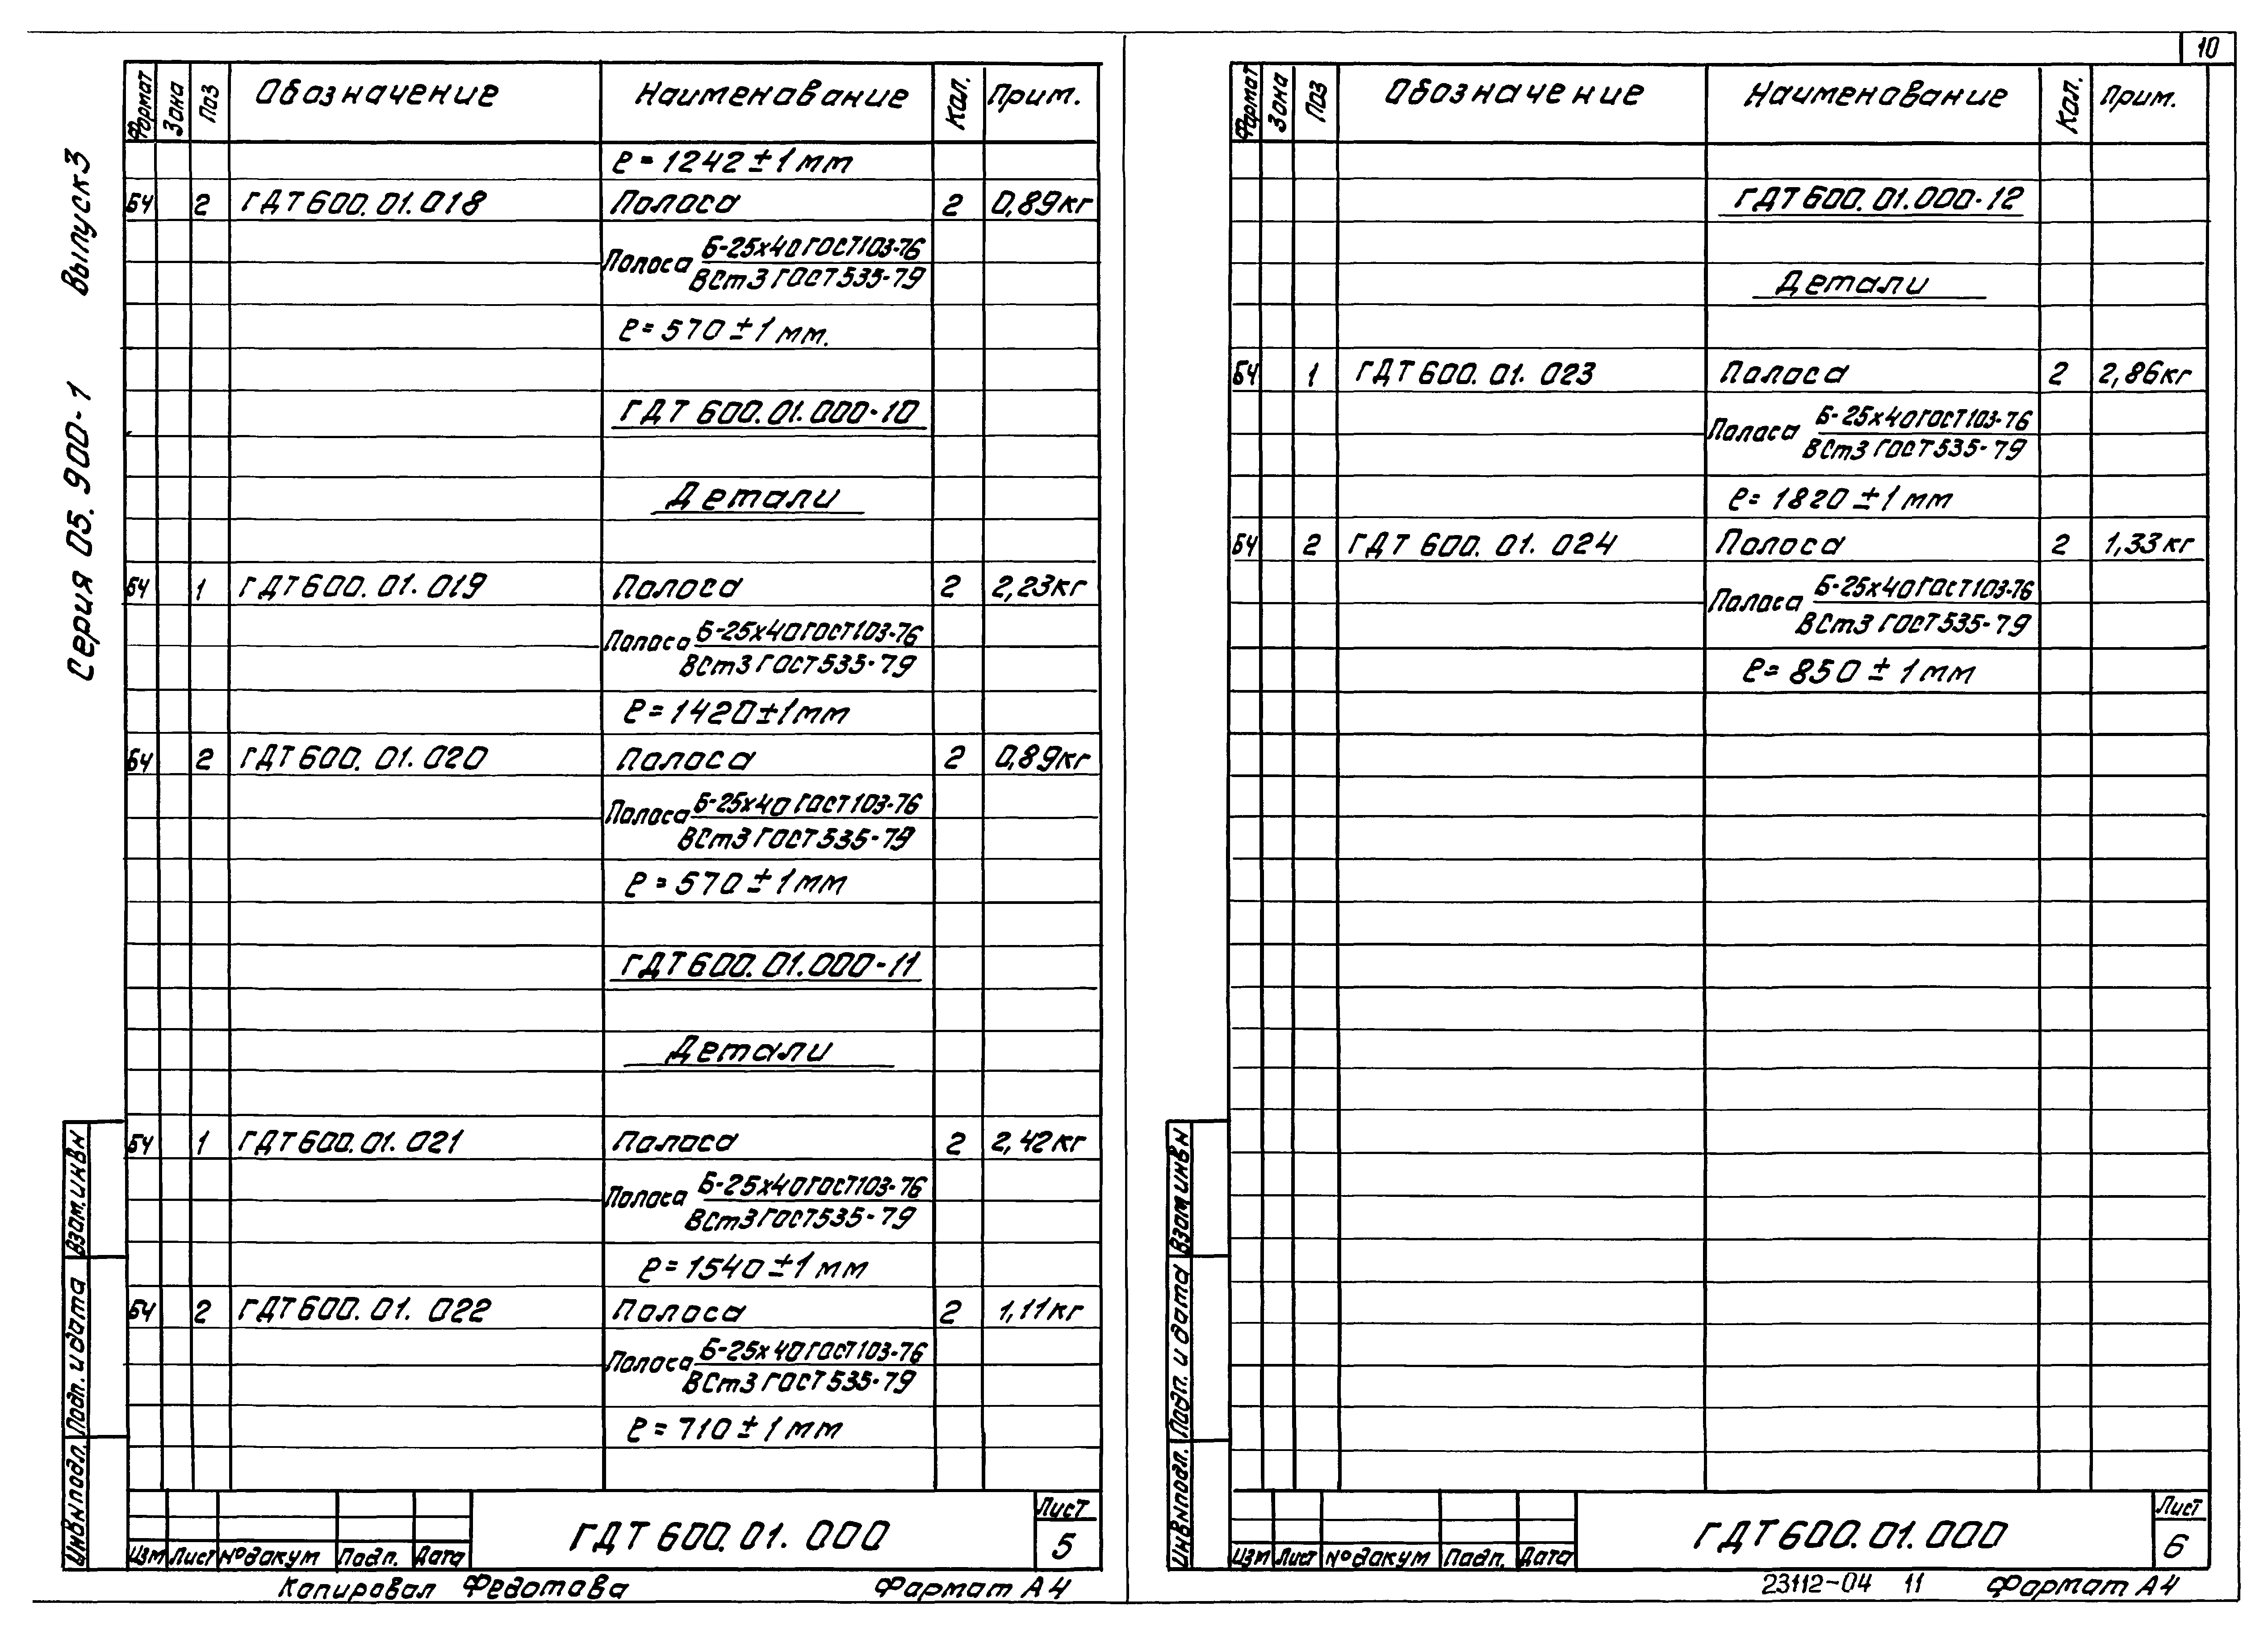 10
Серия 05.900-1 Выпуск 3
Формат Зона Поз Обозначение Наименование Кол. Прим.
ℓ = 1242 ± 1 мм
БЧ 2 ГДТ 600.01.018 Полоса 2 0,89 кг
Полоса Б-25х40 ГОСТ 103-76
ВСт3 ГОСТ 535-79
ℓ = 570 ± 1 мм.
ГДТ 600.01.000-10
Детали
БЧ 1 ГДТ 600.01.019 Полоса 2 2,23 кг
Полоса Б-25х40 ГОСТ 103-76
ВСт3 ГОСТ 535-79
ℓ = 1420 ± 1 мм
БЧ 2 ГДТ 600.01.020 Полоса 2 0,89 кг
Полоса Б-25х40 ГОСТ 103-76
ВСт3 ГОСТ 535-79
ℓ = 570 ± 1 мм
ГДТ 600.01.000-11
Детали
БЧ 1 ГДТ 600.01.021 Полоса 2 2,42 кг
Полоса Б-25х40 ГОСТ 103-76
ВСт3 ГОСТ 535-79
ℓ = 1540 ± 1 мм
БЧ 2 ГДТ 600.01.022 Полоса 2 1,11 кг
Полоса Б-25х40 ГОСТ 103-76
ВСт3 ГОСТ 535-79
ℓ = 710 ± 1 мм
Инв № подл. Подп. и дата Взам. инв №
Изм Лист № докум Подп. Дата
ГДТ 600.01.000
Лист
5
Копировал Федотова Формат А4
Формат Зона Поз Обозначение Наименование Кол. Прим.
ГДТ 600.01.000-12
Детали
БЧ 1 ГДТ 600.01.023 Полоса 2 2,86 кг
Полоса Б-25х40 ГОСТ 103-76
ВСт3 ГОСТ 535-79
ℓ = 1820 ± 1 мм
БЧ 2 ГДТ 600.01.024 Полоса 2 1,33 кг
Полоса Б-25х40 ГОСТ 103-76
ВСт3 ГОСТ 535-79
ℓ = 850 ± 1 мм
Инв № подл. Подп. и дата Взам инв №
Изм Лист № докум Подп. Дата
ГДТ 600.01.000
Лист
6
23112-04 11 Формат А4